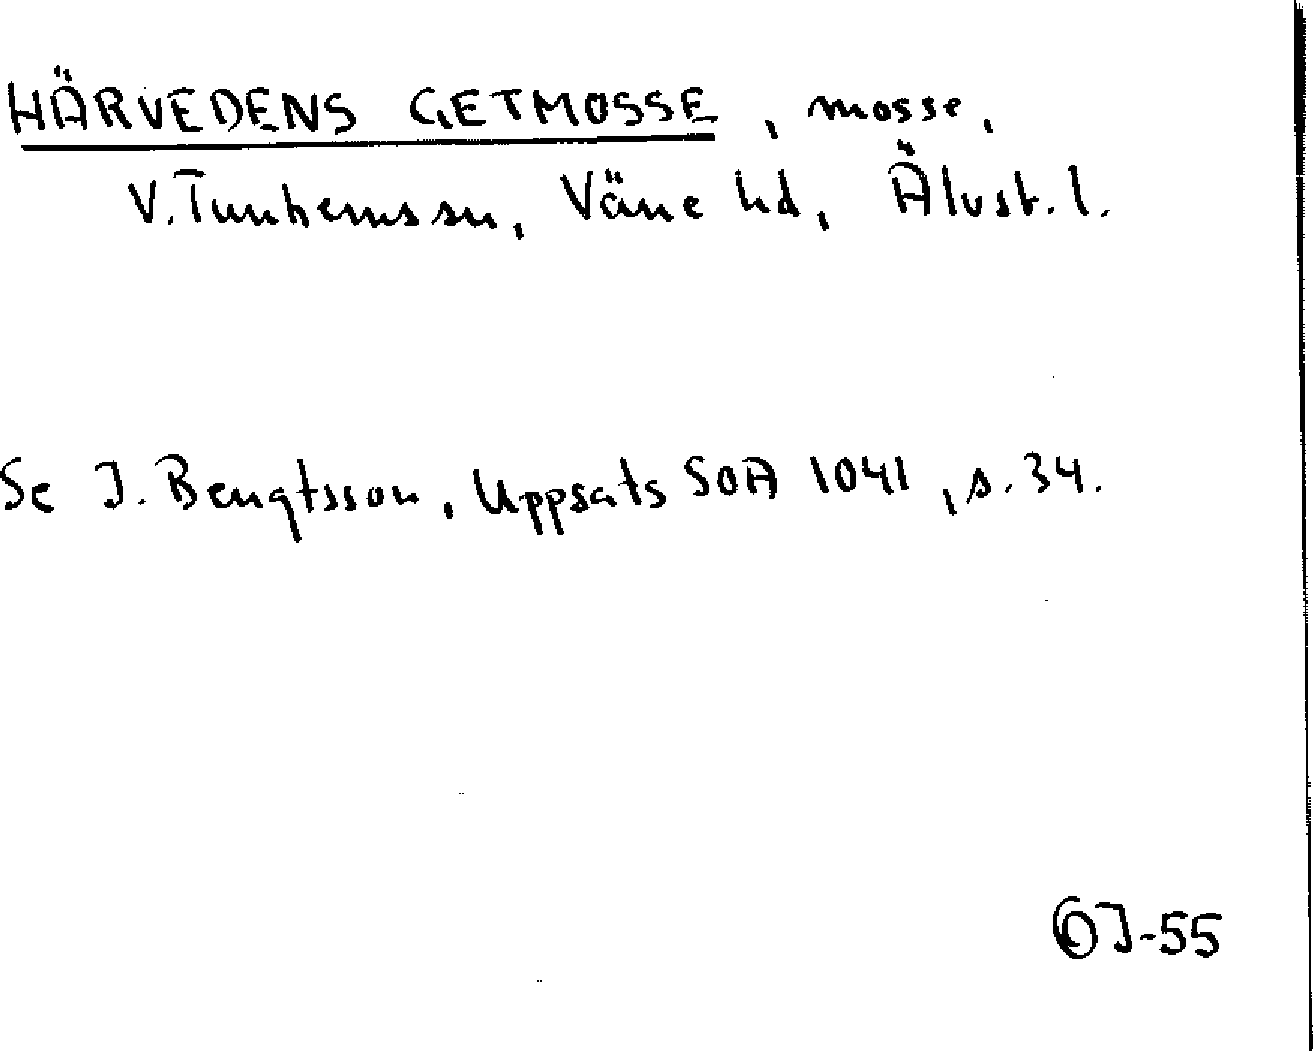 HÄRVEDENS GETMOSSE, mosse,
V. Tunhems sn, Väne hd, Älvsb. l.
Se J. Bengtsson, Uppsats SOA 1041, s. 34.
OJ-55